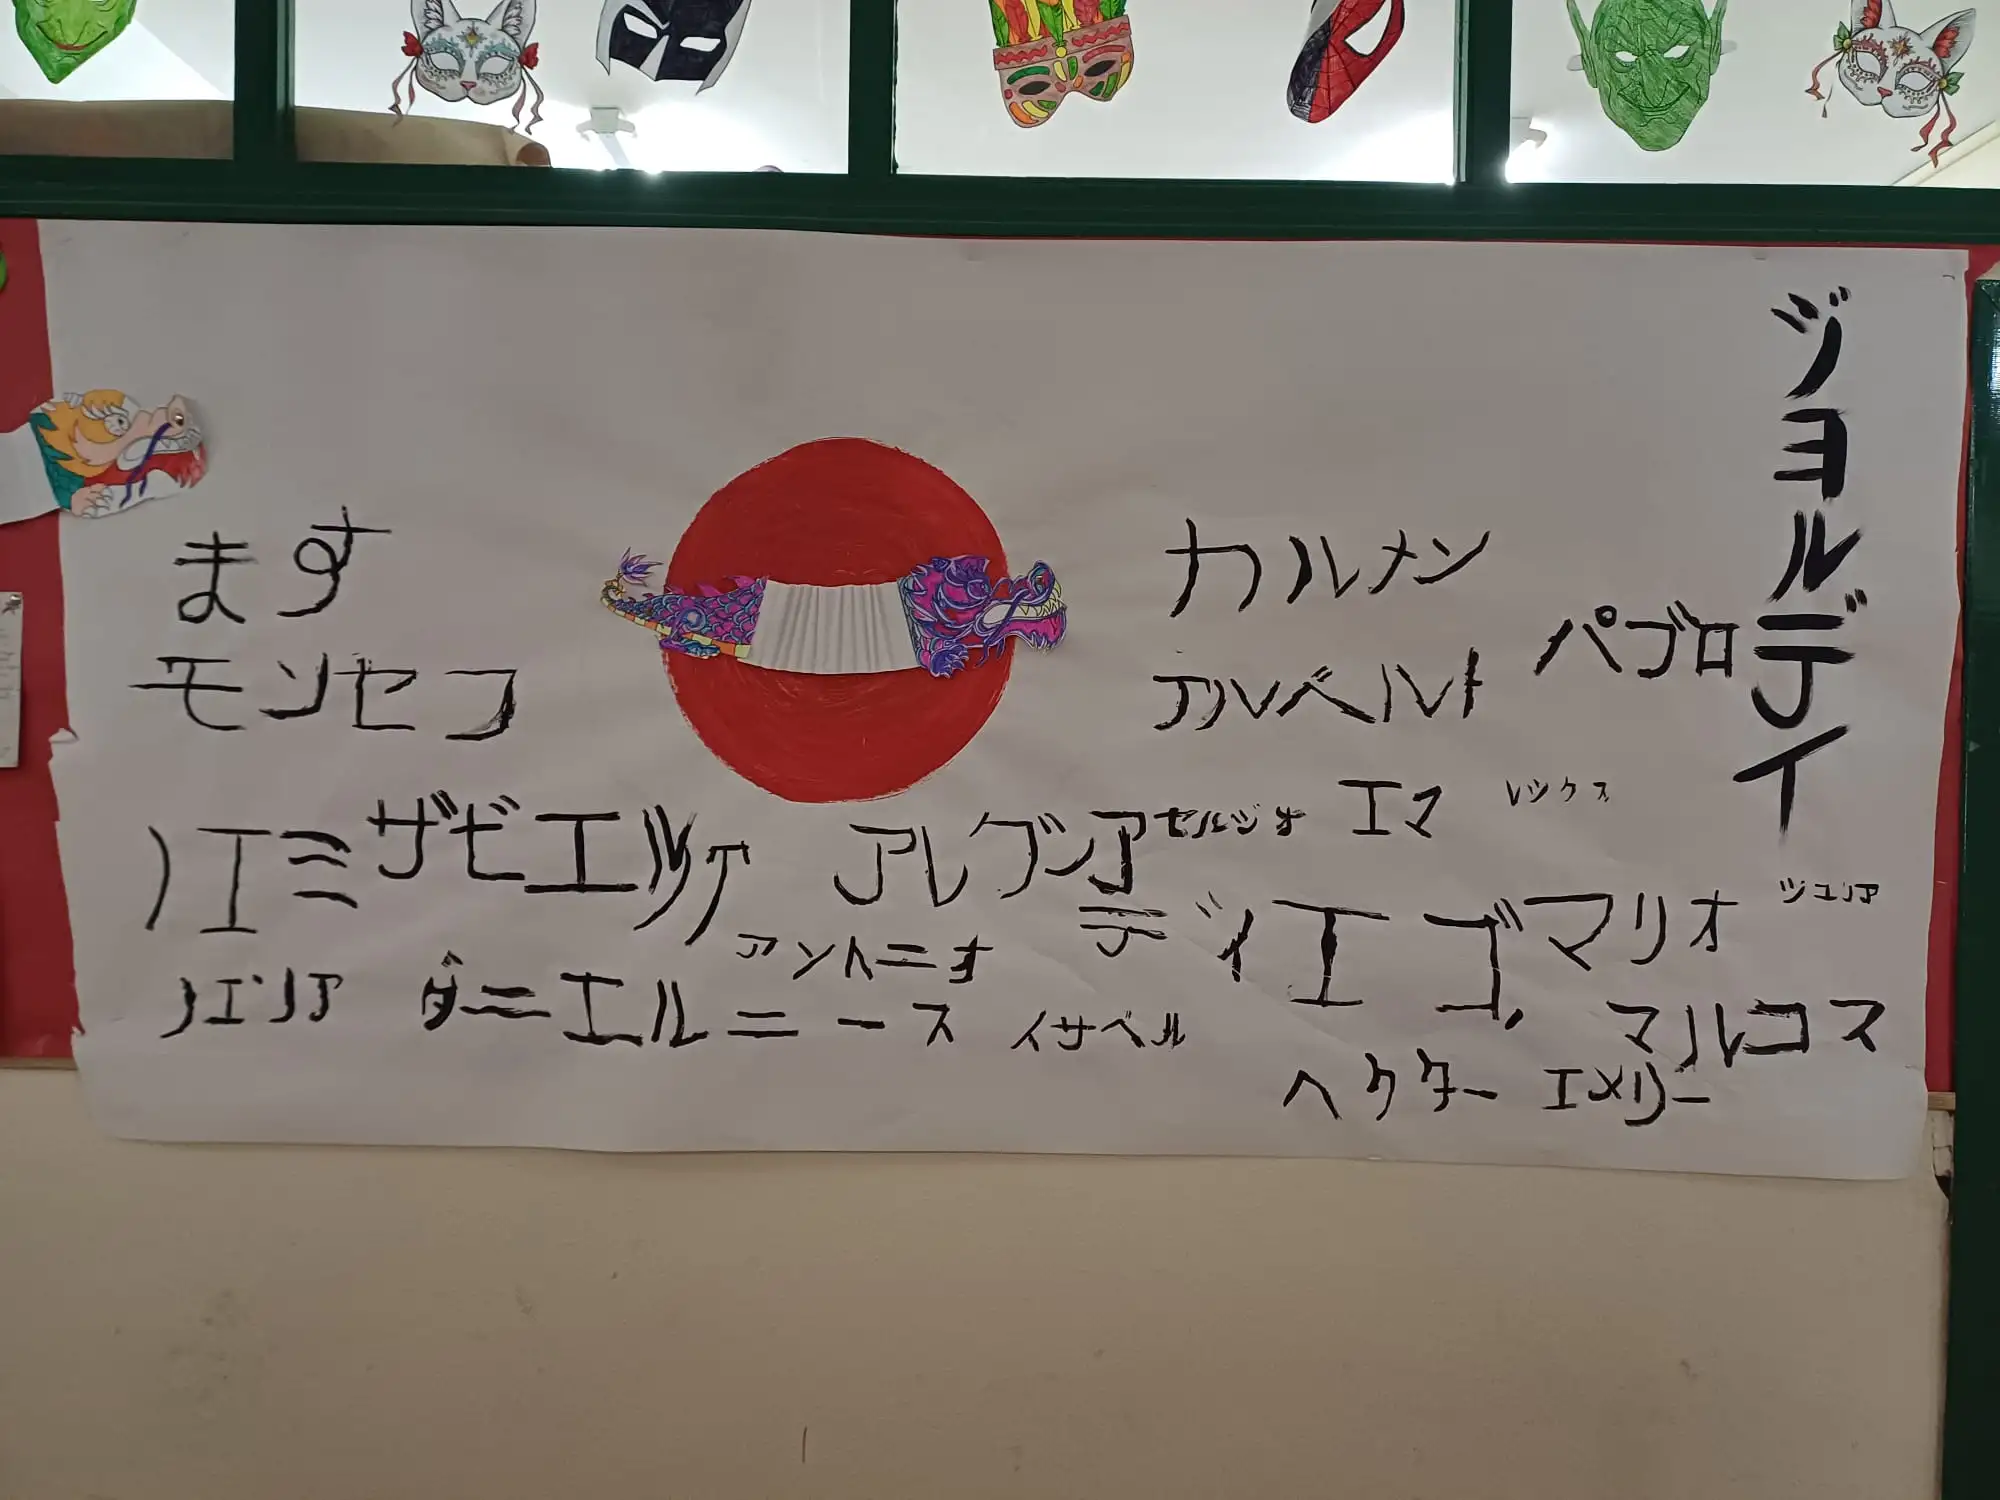 ます
モンセフ
カルメン
アルベルト
パブロ
ジョルディ
ノエミ
ザビエル
ケ
セルジオ
エマ
レックス
ディエゴ
マリオ
ジュリア
アントニオ
ダニエル
ニース
イサベル
マルコス
ヘクター
エメリー